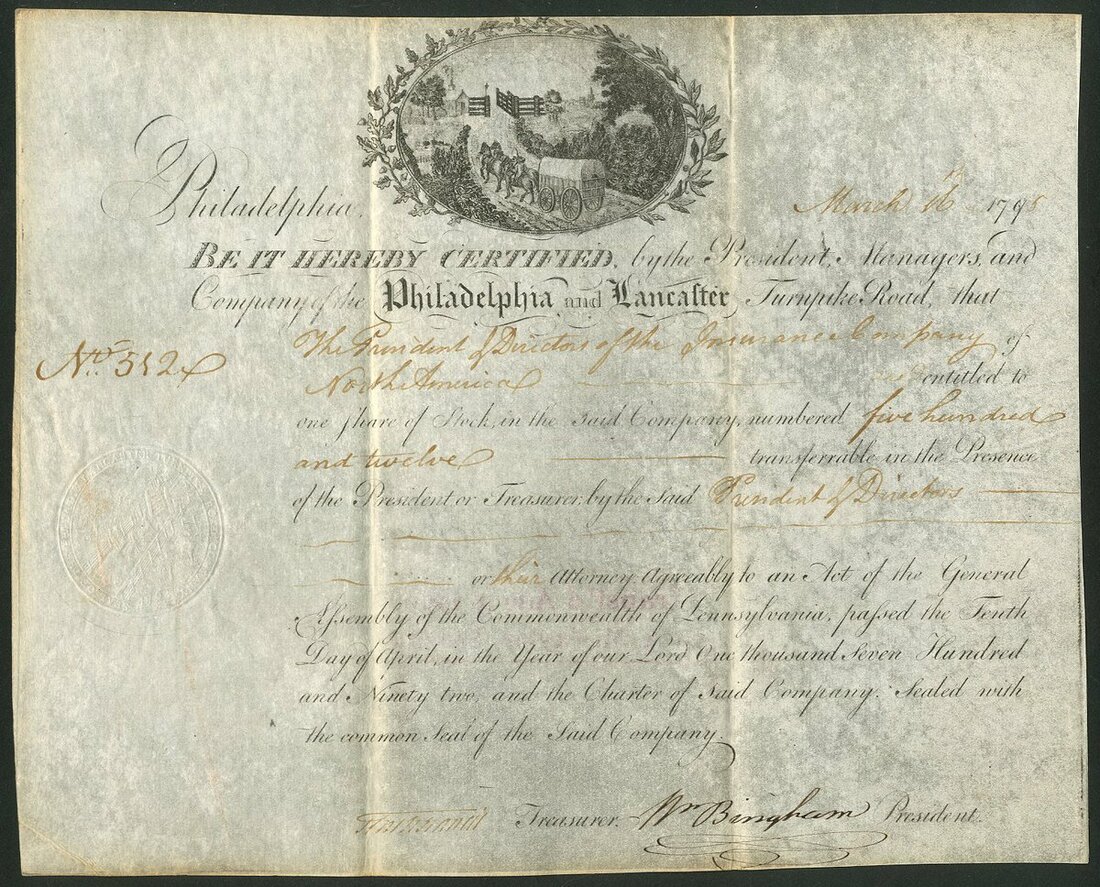 Philadelphia, March 16th 1795
BE IT HEREBY CERTIFIED, by the President, Managers, and
Company of the Philadelphia and Lancaster Turnpike Road, that
The President & Directors of the Insurance Company of
No. 512
North America are entitled to
one Share of Stock, in the said Company, numbered five hundred
and twelve transferrable in the Presence
of the President or Treasurer, by the Said President & Directors
or their Attorney, Agreeably to an Act of the General
Assembly of the Commonwealth of Pennsylvania, passed the Tenth
Day of April, in the Year of our Lord One thousand Seven Hundred
and Ninety two, and the Charter of Said Company. Sealed with
the common Seal of the Said Company.
Treasurer. Wm Bingham President.